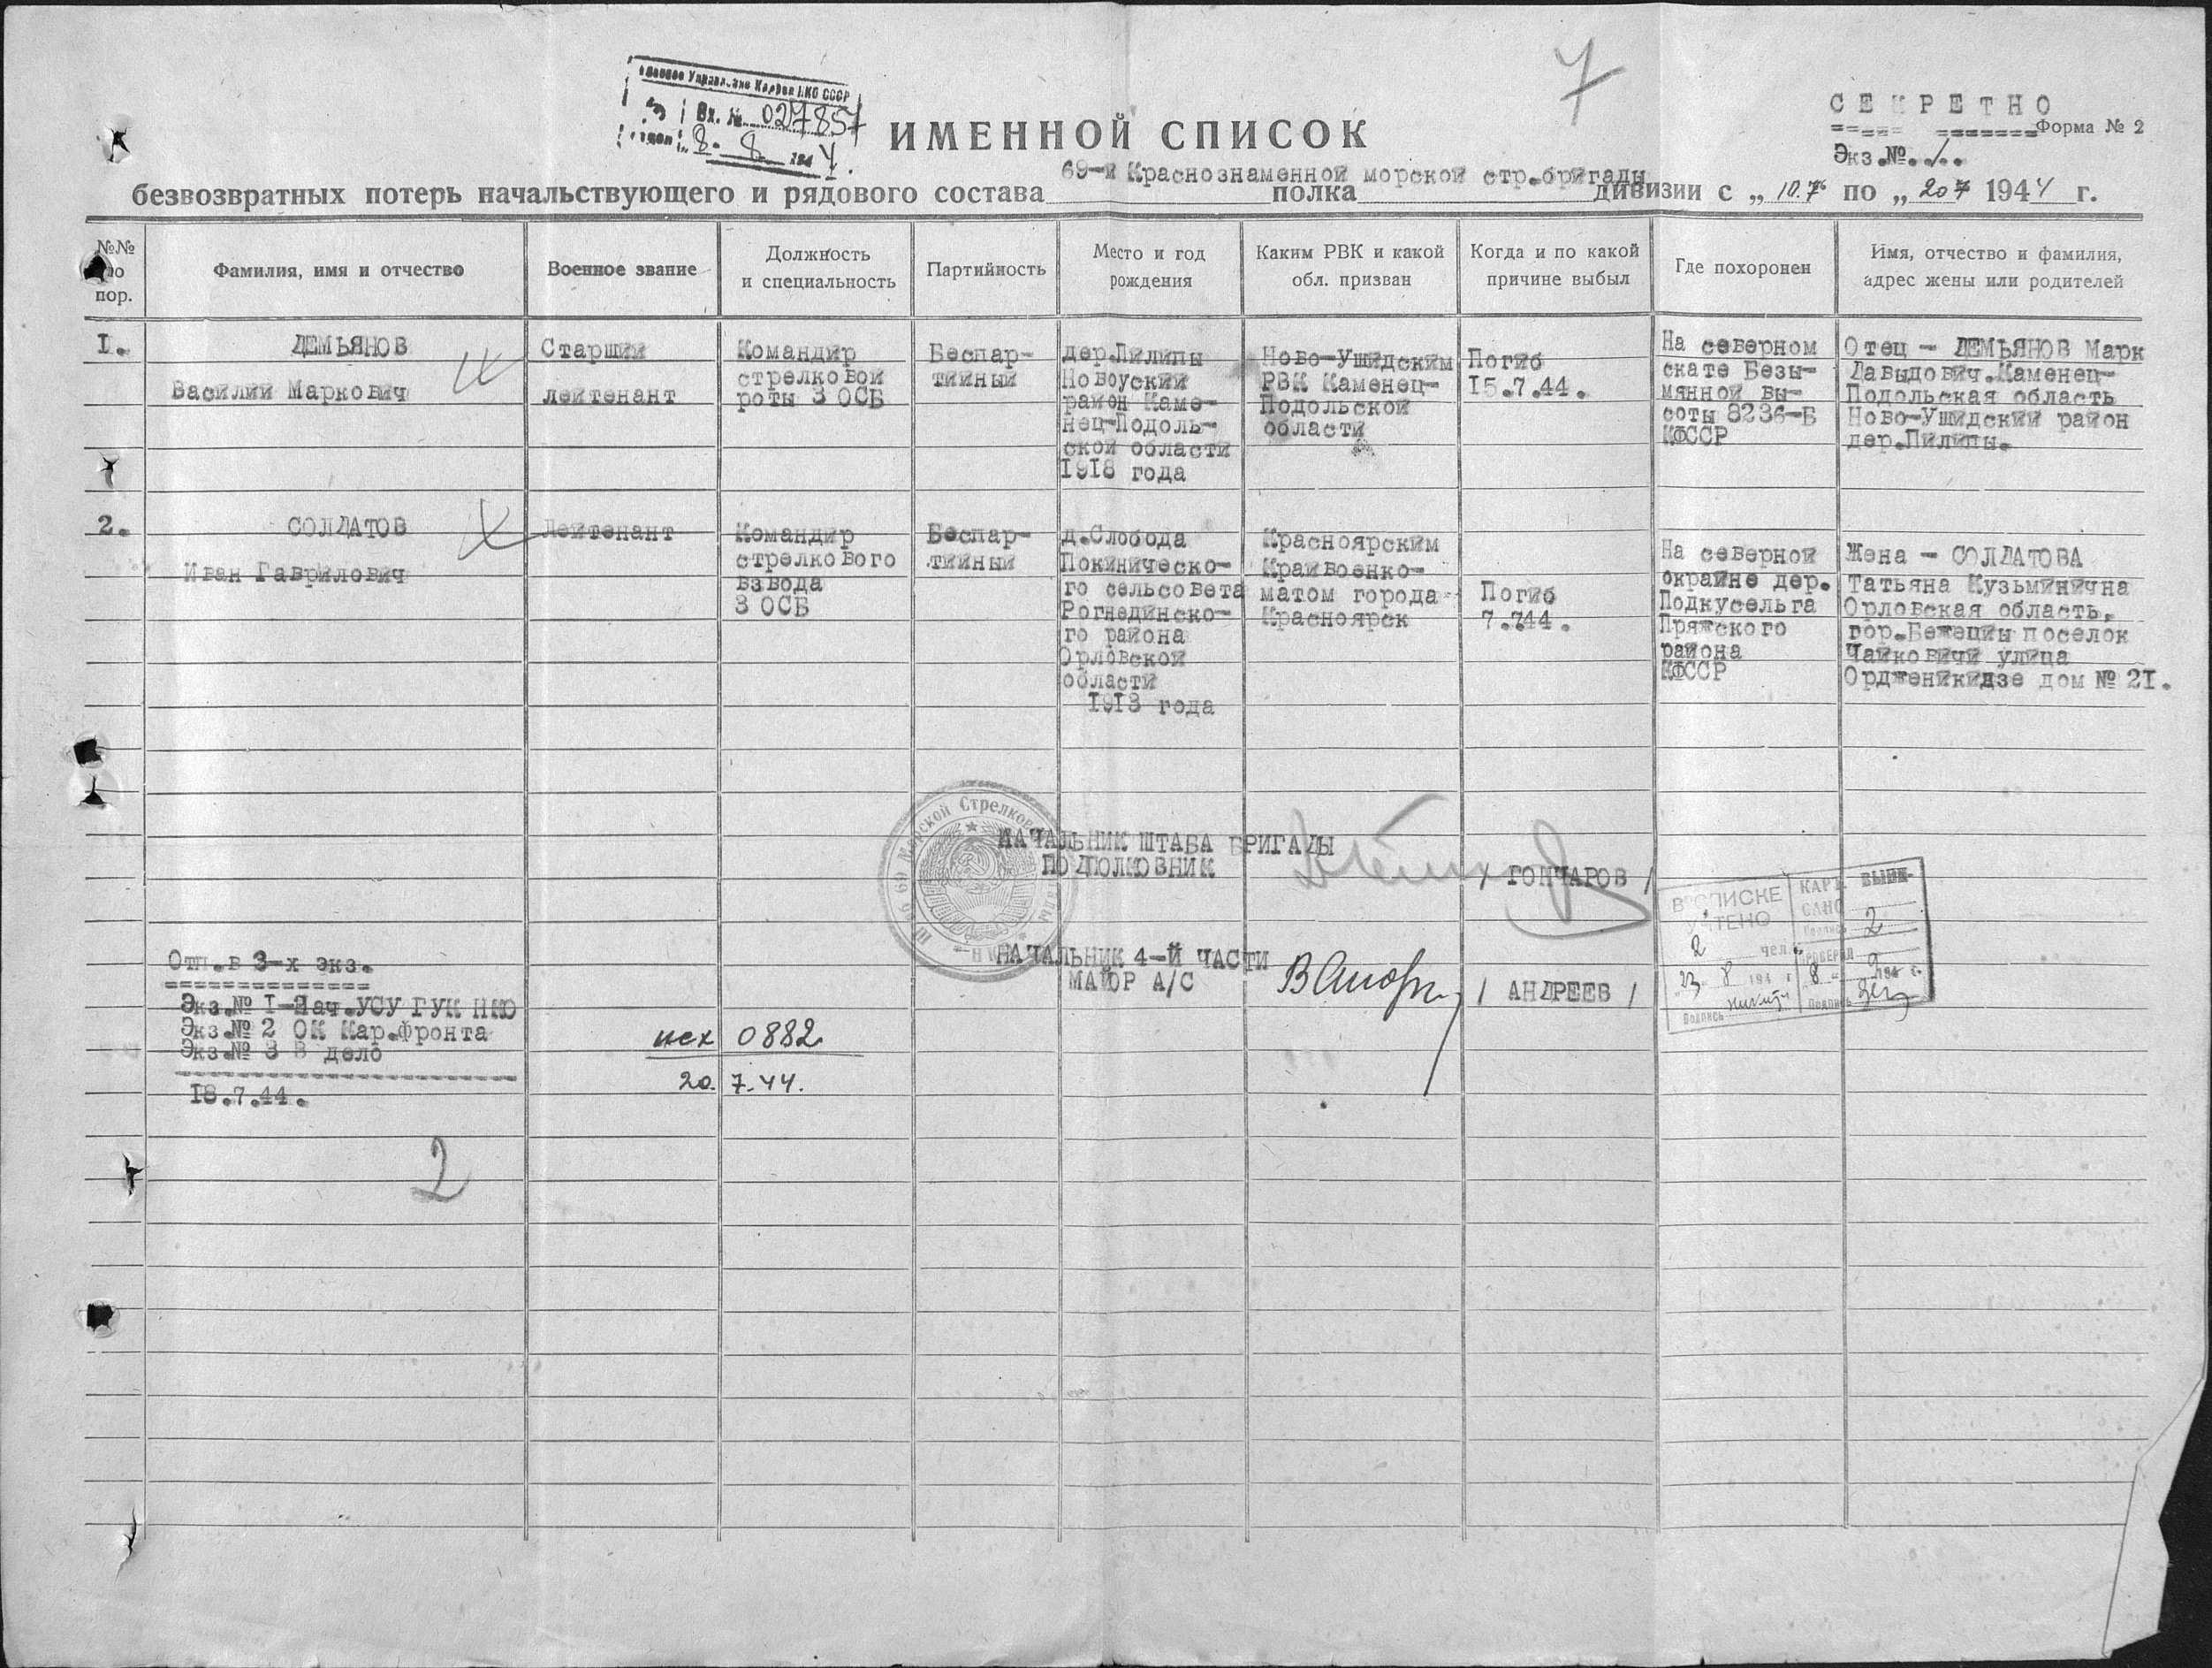 7
Главное Управление Кадров НКО СССР
Вх. № 027857
8. 8 1944.
СЕКРЕТНО
Форма № 2
Экз.№.1..
ИМЕННОЙ СПИСОК
69-й Краснознаменной морской стр.бригады
безвозвратных потерь начальствующего и рядового состава полка дивизии с „10.7" по „20.7 1944 г.
№№ по пор.
Фамилия, имя и отчество
Военное звание
Должность и специальность
Партийность
Место и год рождения
Каким РВК и какой обл. призван
Когда и по какой причине выбыл
Где похоронен
Имя, отчество и фамилия, адрес жены или родителей
1.
ДЕМЬЯНОВ
Василий Маркович
Старший
лейтенант
Командир
стрелковой
роты 3 ОСБ
Беспар-
тийный
дер.Пилипы
Новоуский
район Каме-
нец-Подоль-
ской области
1918 года
Ново-Ушидским
РВК Каменец-
Подольской
области
Погиб
15.7.44.
На северном
скате Безы-
мянной вы-
соты 8236-Б
КФССР
Отец - ДЕМЬЯНОВ Марк
Давыдович.Каменец-
Подольская область
Ново-Ушидский район
дер.Пилипы.
2.
СОЛДАТОВ
Иван Гаврилович
Лейтенант
Командир
стрелкового
взвода
3 ОСБ
Беспар-
тийный
д.Слобода
Покиническо-
го сельсовета
Рогнединско-
го района
Орловской
области
1913 года
Красноярским
Крайвоенко-
матом города
Красноярск
Погиб
7.744.
На северной
окраине дер.
Подкусельга
Пряжского
района
КФССР
Жена - СОЛДАТОВА
Татьяна Кузьминична
Орловская область,
гор.Бежецик поселок
Чайковичи улица
Ордженикидзе дом № 21.
НАЧАЛЬНИК ШТАБА БРИГАДЫ
ПОДПОЛКОВНИК
/ ГОНЧАРОВ /
НАЧАЛЬНИК 4-Й ЧАСТИ
МАЙОР А/С
/ АНДРЕЕВ /
69 Морской Стрелковой
В СПИСКЕ
УЧТЕНО
2 чел.
23 8 194 г.
Подпись
КАРТ. ВЫПИ-
САНО 2
Подпись
ПРОВЕРИЛ
8 194 г.
Подпись
Отп.в 3-х экз.
Экз.№ 1-Нач.УСУ ГУК НКО
Экз.№ 2 ОК Кар.фронта
Экз.№ 3 В дело
18.7.44.
исх 0882
20. 7.44.
2